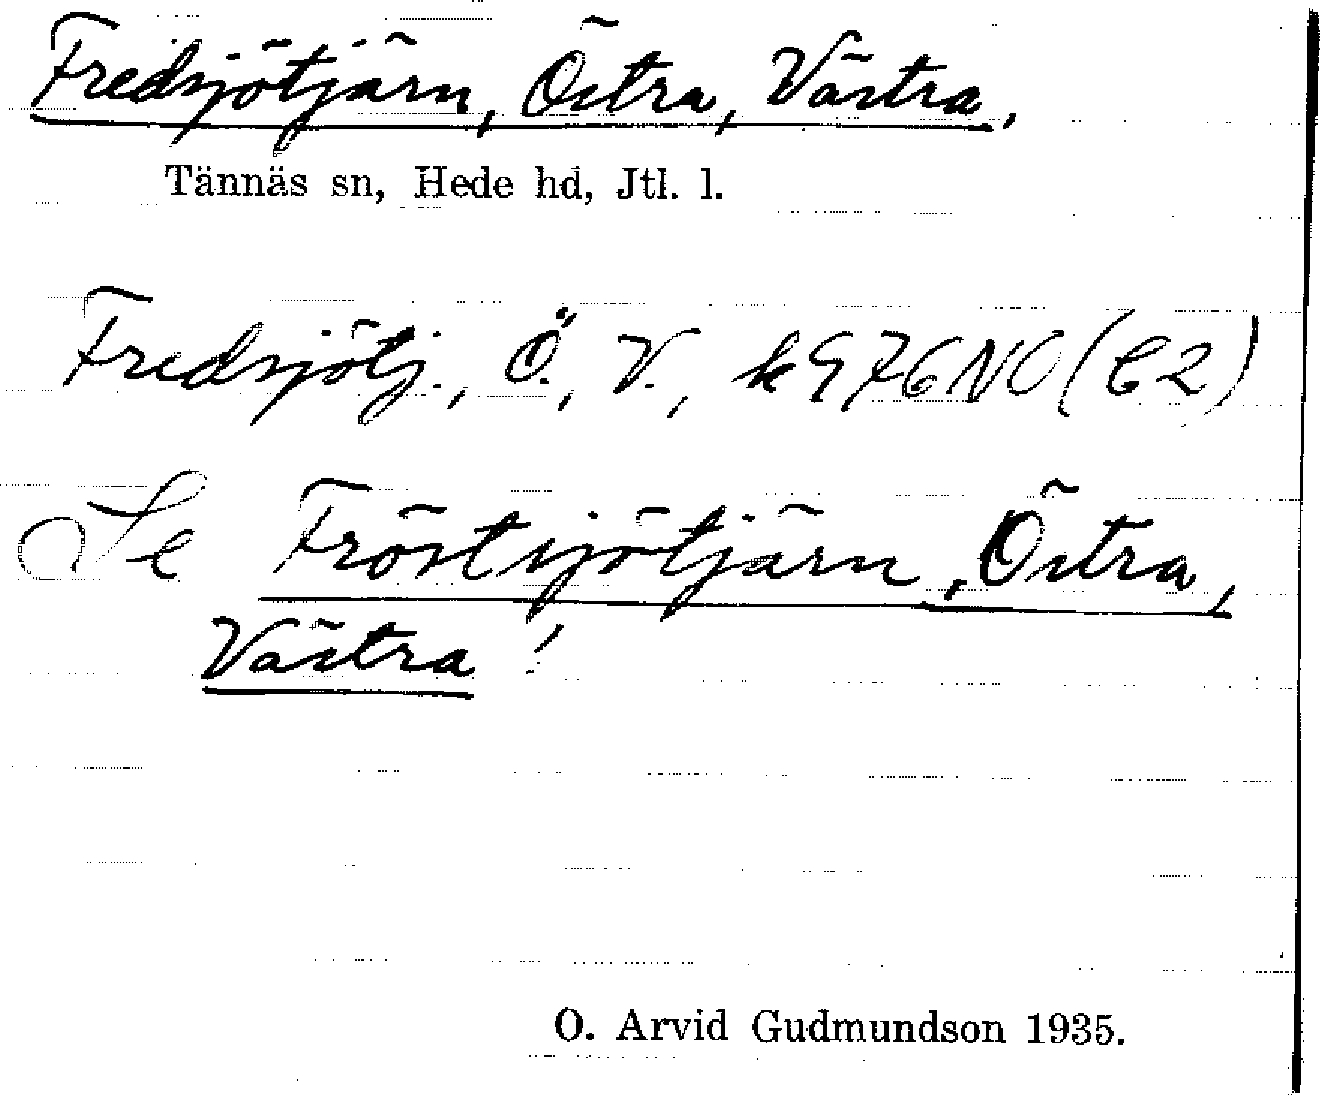 Fredsjötjärn, Östra, Västra,
Tännäs sn, Hede hd, Jtl. l.
Fredsjötj., Ö., V., k976NO(C2)
Se Fröstsjötjärn, Östra,
Västra!
O. Arvid Gudmundson 1935.